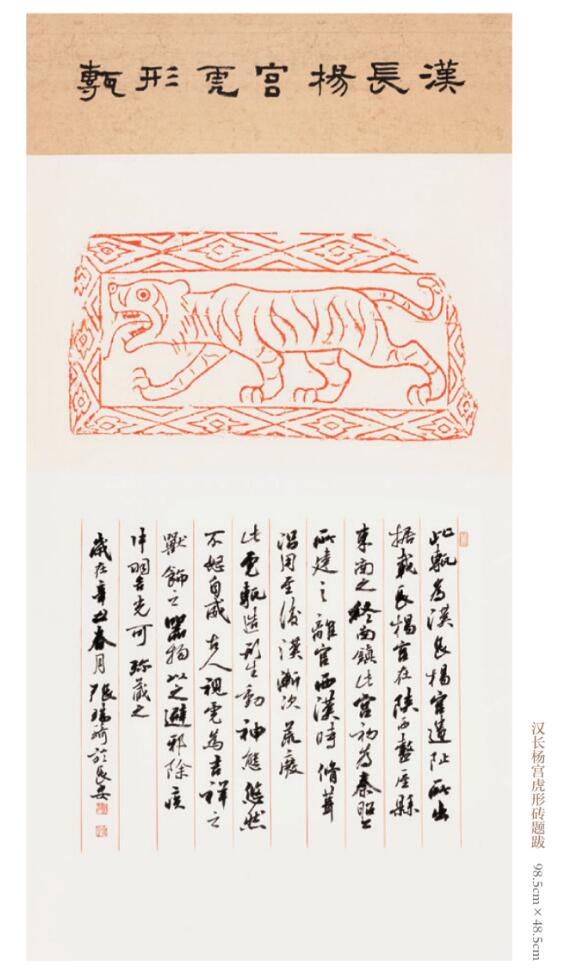 漢長楊宮虎形甎
此甎為漢長楊宮遺址所出
据載長楊宮在陝西盩厔縣
東南之終南鎮此宮初為秦昭王
所建之離宮西漢時脩葺
沿用至後漢漸次荒廢
此虎甎造形生動神態悠然
不怒自威古人視虎為吉祥之
獸飾之器物以之避邪除疫
明吾兄可珍藏之
歲在辛丑春月張於長安
汉长杨宫虎形砖题跋 98.5cm×48.5cm